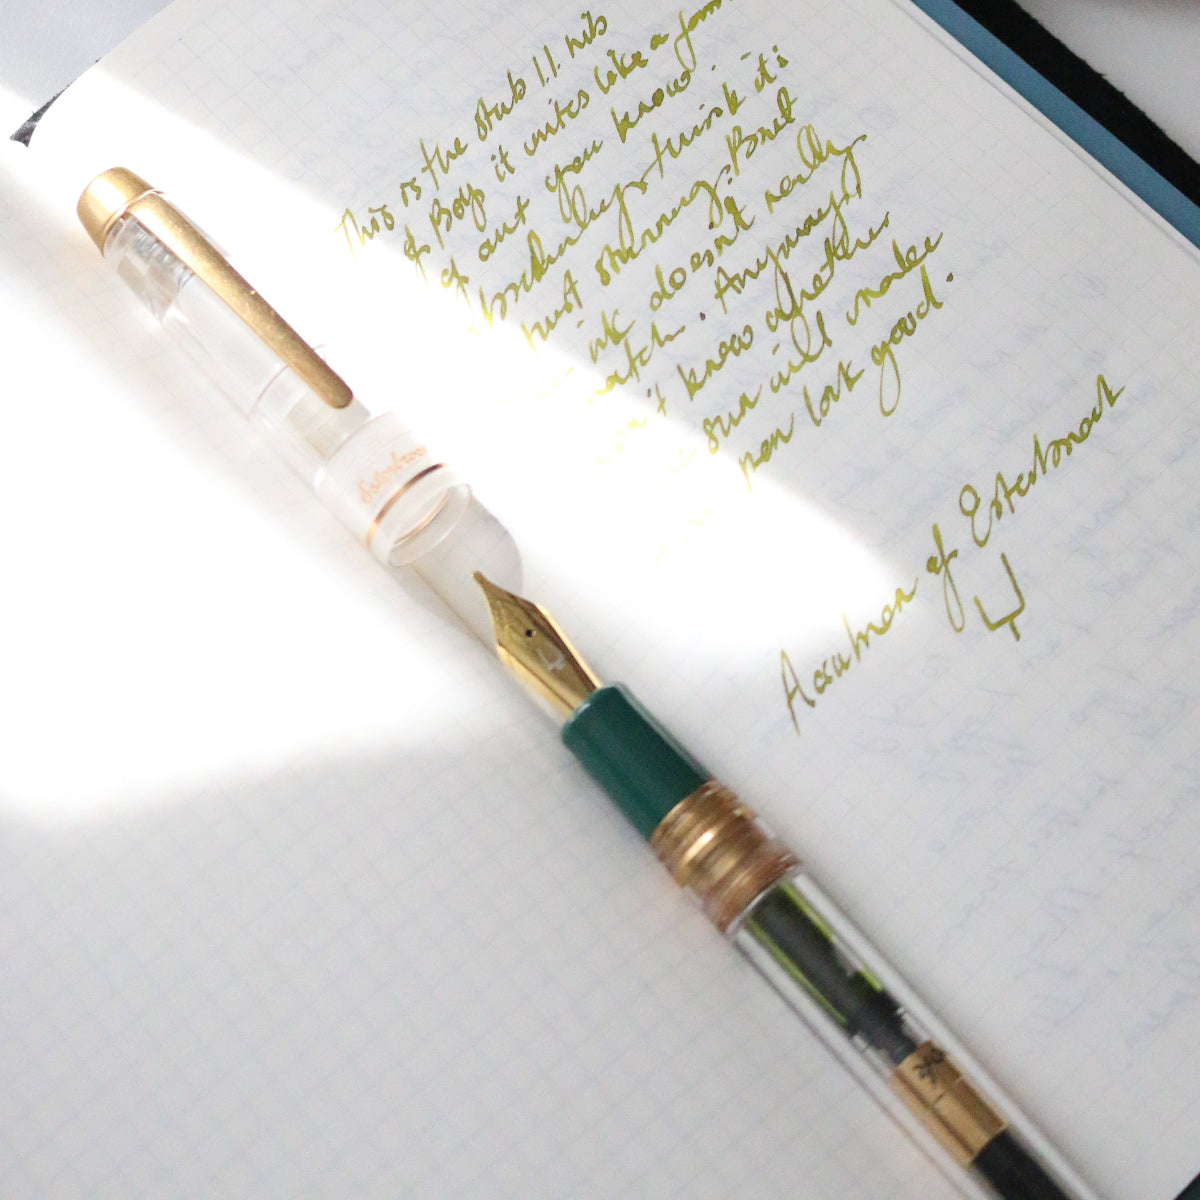 This is the stub 1.1. nib
of Boy it writes like a
of art you know.
think it's
just stunning. But
ink doesn't really
match. Anyways, I
don't know whether
the sun will make
pen look good.
of Esterbrook
Esterbrook